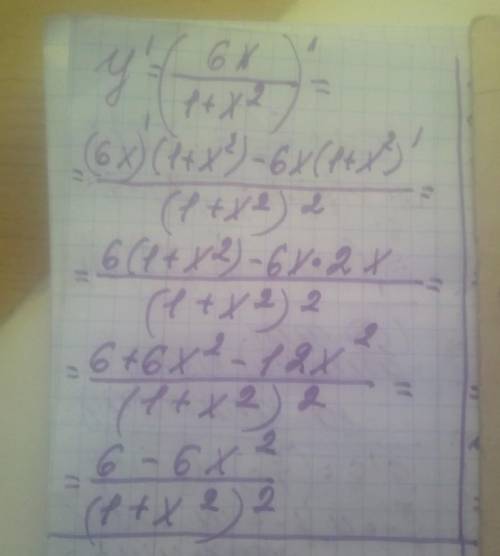 y' = (6x / 1+x²)' =
= (6x)'(1+x²)-6x(1+x²)' / (1+x²)² =
= 6(1+x²)-6x·2x / (1+x²)² =
= 6+6x²-12x² / (1+x²)² =
= 6-6x² / (1+x²)²